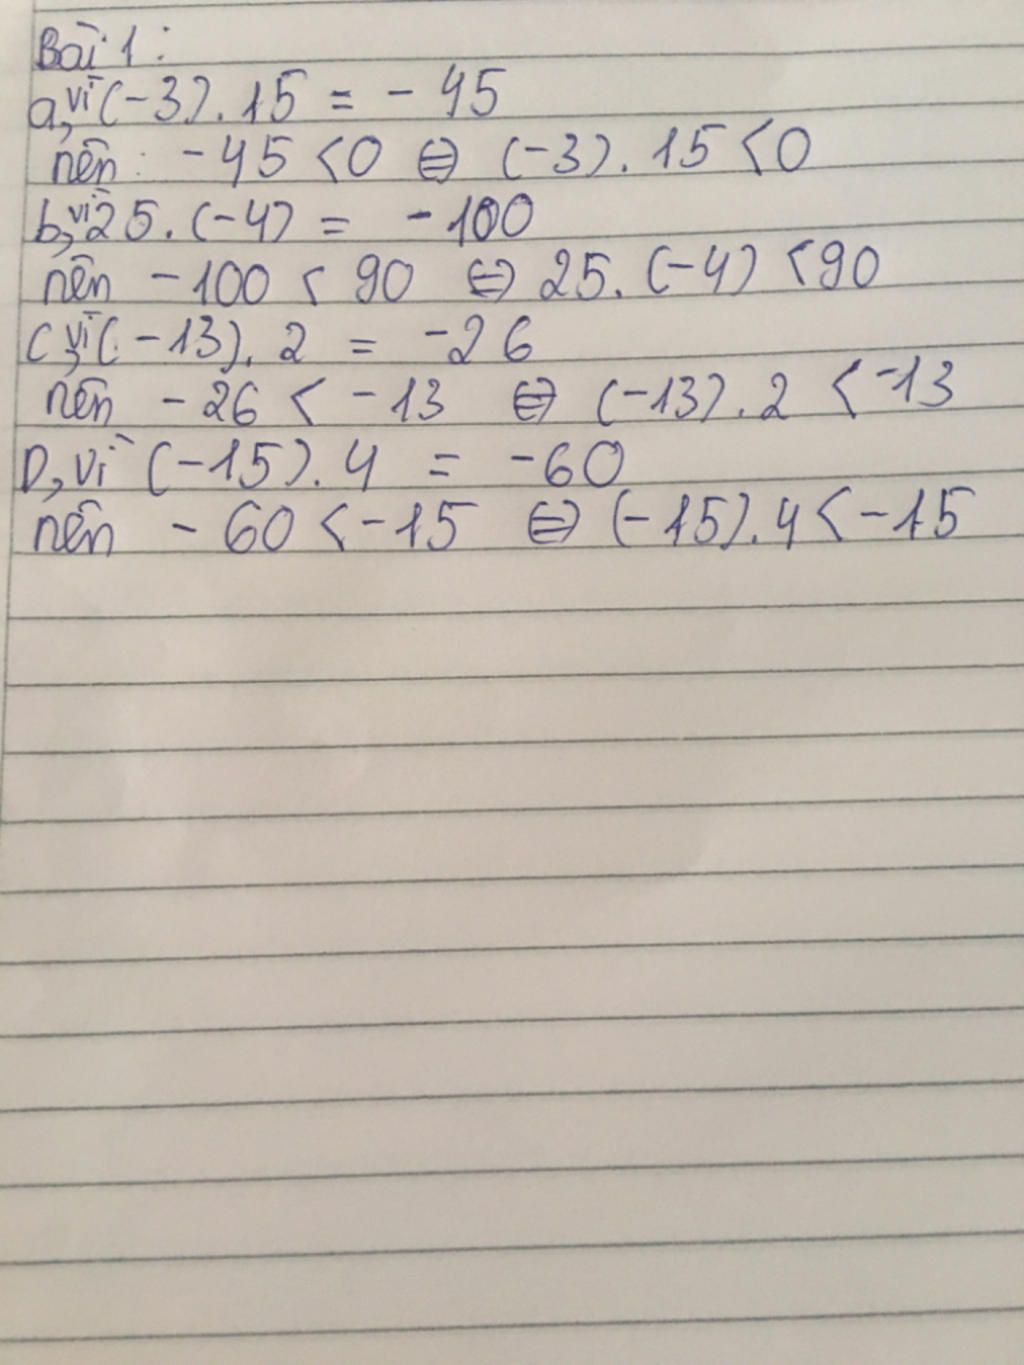 Bài 1:
a, vì (-3). 15 = - 45
nên: - 45 < 0 ⇔ (-3). 15 < 0
b, vì 25. (-4) = - 100
nên - 100 < 90 ⇔ 25. (-4) < 90
c, vì (-13). 2 = -26
nên - 26 < - 13 ⇔ (-13). 2 < -13
D, vì (-15). 4 = -60
nên - 60 < -15 ⇔ (-15). 4 < -15